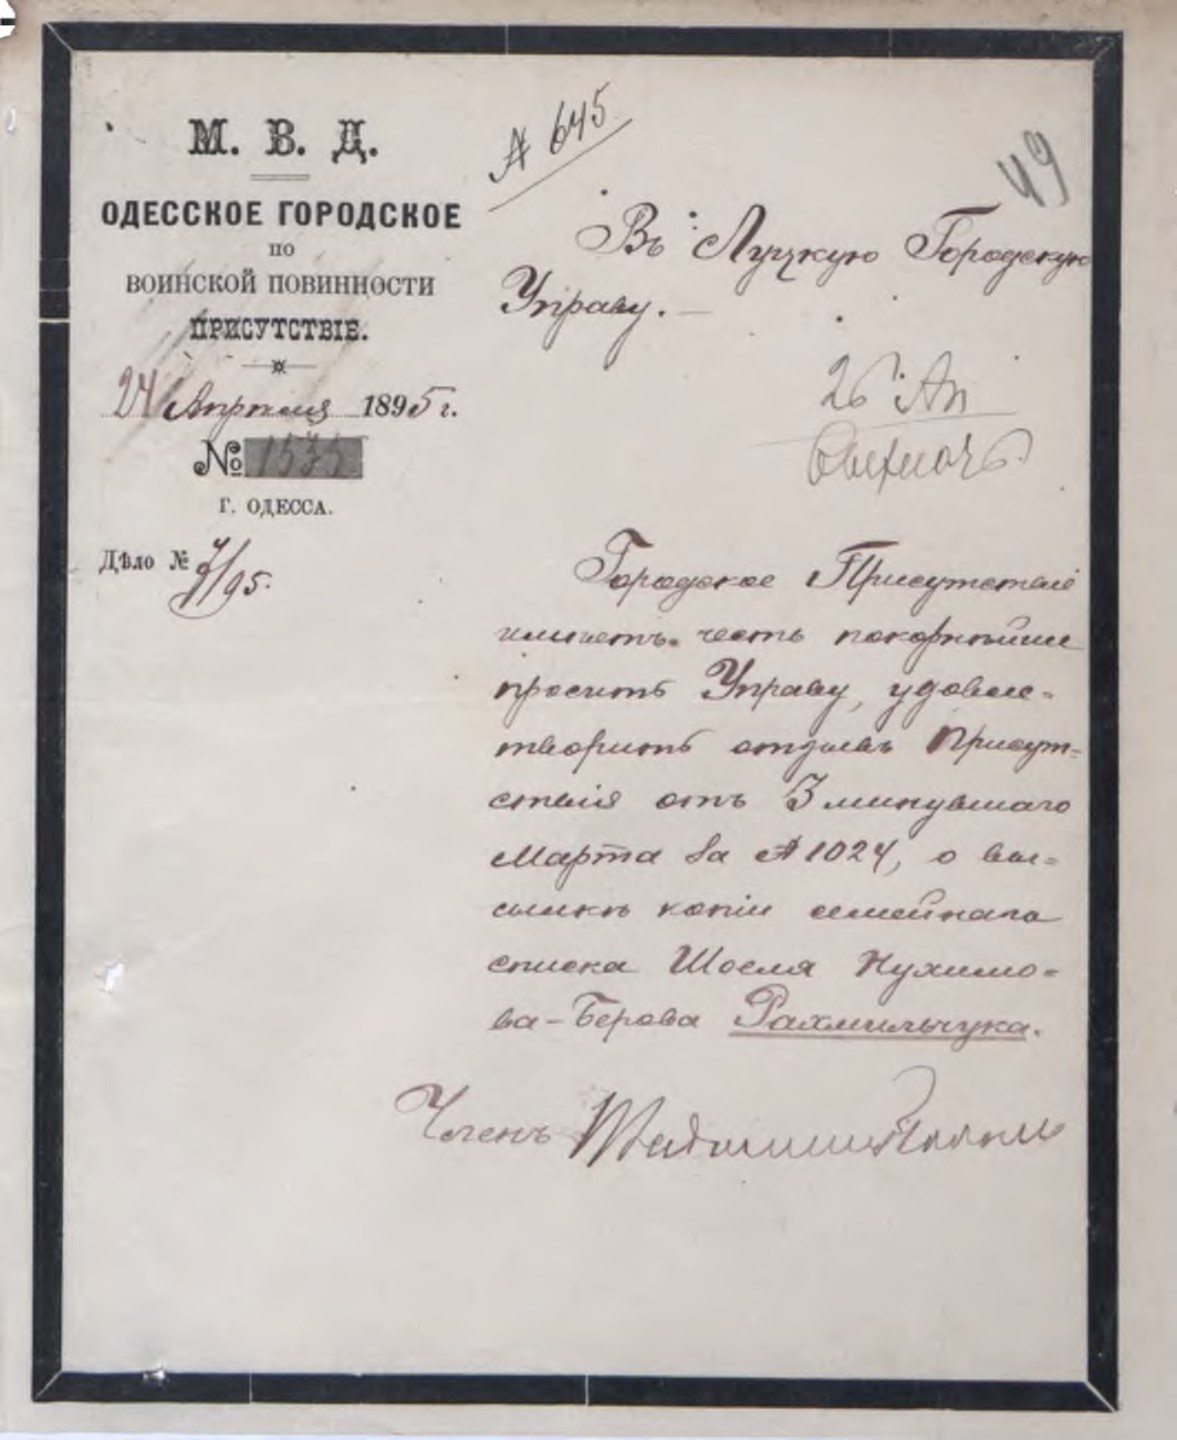 М. В. Д.
ОДЕССКОЕ ГОРОДСКОЕ
ПО
ВОИНСКОЙ ПОВИННОСТИ
ПРИСУТСТВІЕ.
24 Апрѣля 1895 г.
№ 1535
Г. ОДЕССА.
Дѣло № 7/95.
№ 645
49
Въ Луцкую Городскую
Управу. —
26 Ап
Городское Присутствіе
имѣетъ честь покорнѣйше
просить Управу, удовле-
творить отзывъ Присут-
ствія отъ 3 минувшаго
Марта за № 1024, о вы-
сылкѣ копіи семейнаго
списка Шоеля Нухимо-
ва-Берова Рахмильчука.
Членъ